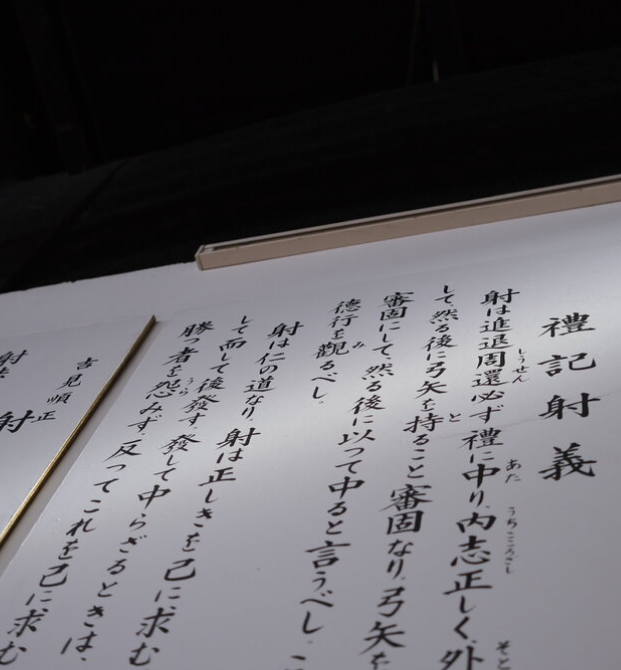 禮記射義
射は進退周還必ず禮に中り、内志正しく、外
して、然る後に弓矢を持ること審固なり。弓矢を
審固にして、然る後に以つて中ると言うべし。こ
德行を觀るべし。
射は仁の道なり。射は正しきを己に求む
して而して後發す。發して中らざるときは、
勝つ者を怨みず。反つてこれを己に求む
吉見順正
射法
射